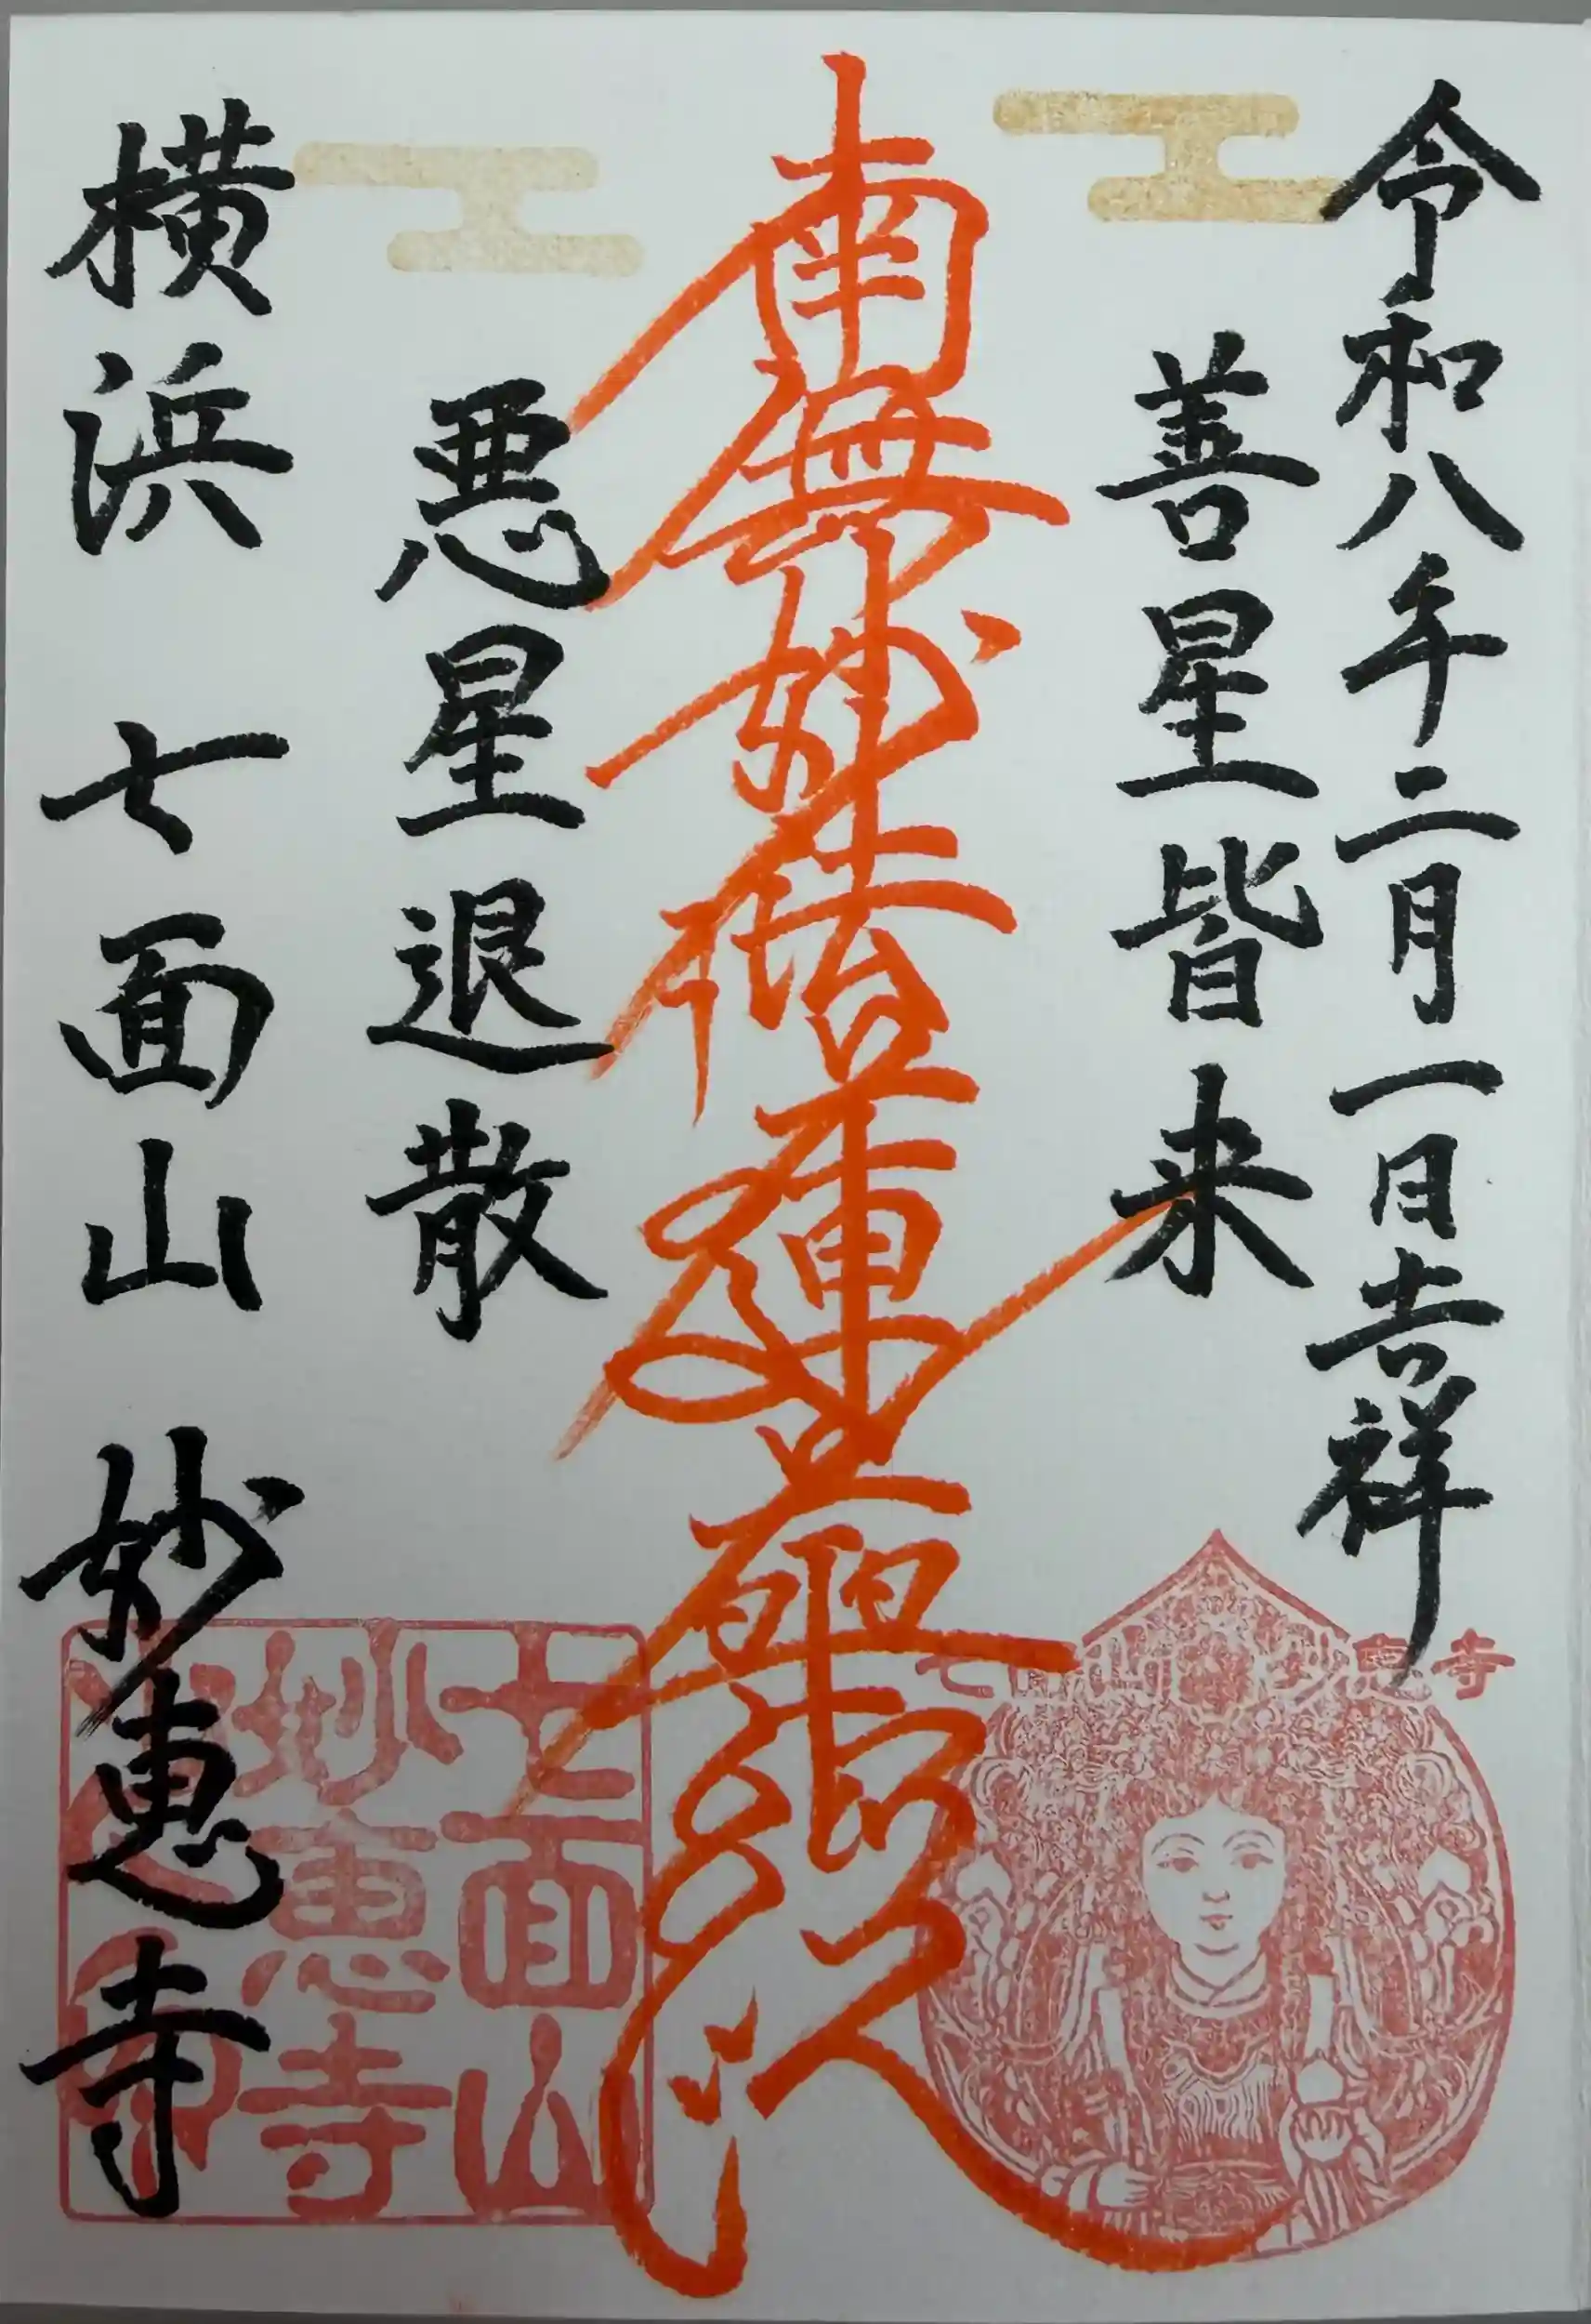 令和八年二月一日吉祥
善星皆来
南無妙法蓮華経
悪星退散
横浜 七面山 妙恵寺
七面山 妙恵寺
七面山
妙恵寺